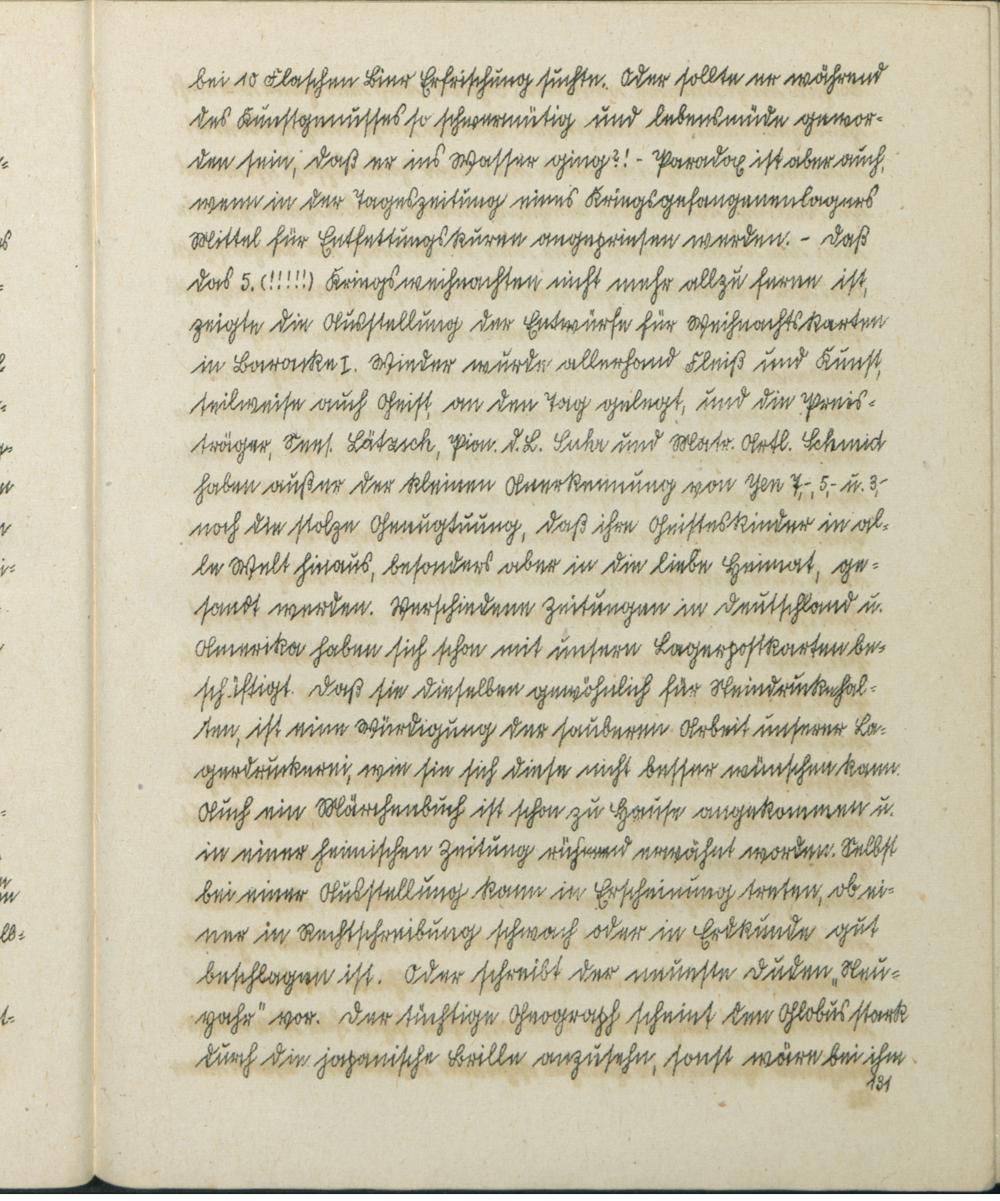 bei 10 Flaschen Bier Erfrischung suchte. Oder sollte er während
des Kunstgenusses so schwermütig und lebensmüde gewor-
den sein, daß er ins Wasser ging?! - Paradox ist aber auch,
wenn in der Tageszeitung eines Kriegsgefangenenlagers
Mittel für Entfettungskuren angepriesen werden. - Daß
das 5. (!!!!!) Kriegsweihnachten nicht mehr allzu ferne ist,
zeigte die Ausstellung der Entwürfe für Weihnachtskarten
in Baracke I. Wieder wurde allerhand Fleiß und Kunst,
teilweise auch Geist, an den Tag gelegt, und die Preis-
träger, Sees. Lätzsch, Pion. d.L. Suhr und Matr. Artl. Schmid
haben außer der kleinen Anerkennung von Yen 7,-, 5,- u. 3,-
noch die stolze Genugtuung, daß ihre Geisteskinder in al-
le Welt hinaus, besonders aber in die liebe Heimat, ge-
sandt werden. Verschiedene Zeitungen in Deutschland u.
Amerika haben sich schon mit unsern Lagerpostkarten be-
schäftigt. Daß sie dieselben gewöhnlich für Steindrucke hal-
ten, ist eine Würdigung der sauberen Arbeit unserer La-
gerdruckerei, wie sie sich diese nicht besser wünschen kann.
Auch ein Märchenbuch ist schon zu Hause angekommen u.
in einer heimischen Zeitung rühmend erwähnt worden. Selbst
bei einer Ausstellung kann in Erscheinung treten, ob ei-
ner in Rechtschreibung schwach oder in Erdkunde gut
beschlagen ist. Oder schreibt der neueste Duden „Neu-
yahr" vor. Der tüchtige Geograph scheint den Globus stark
durch die japanische Brille anzusehn, sonst wäre bei ihm
131